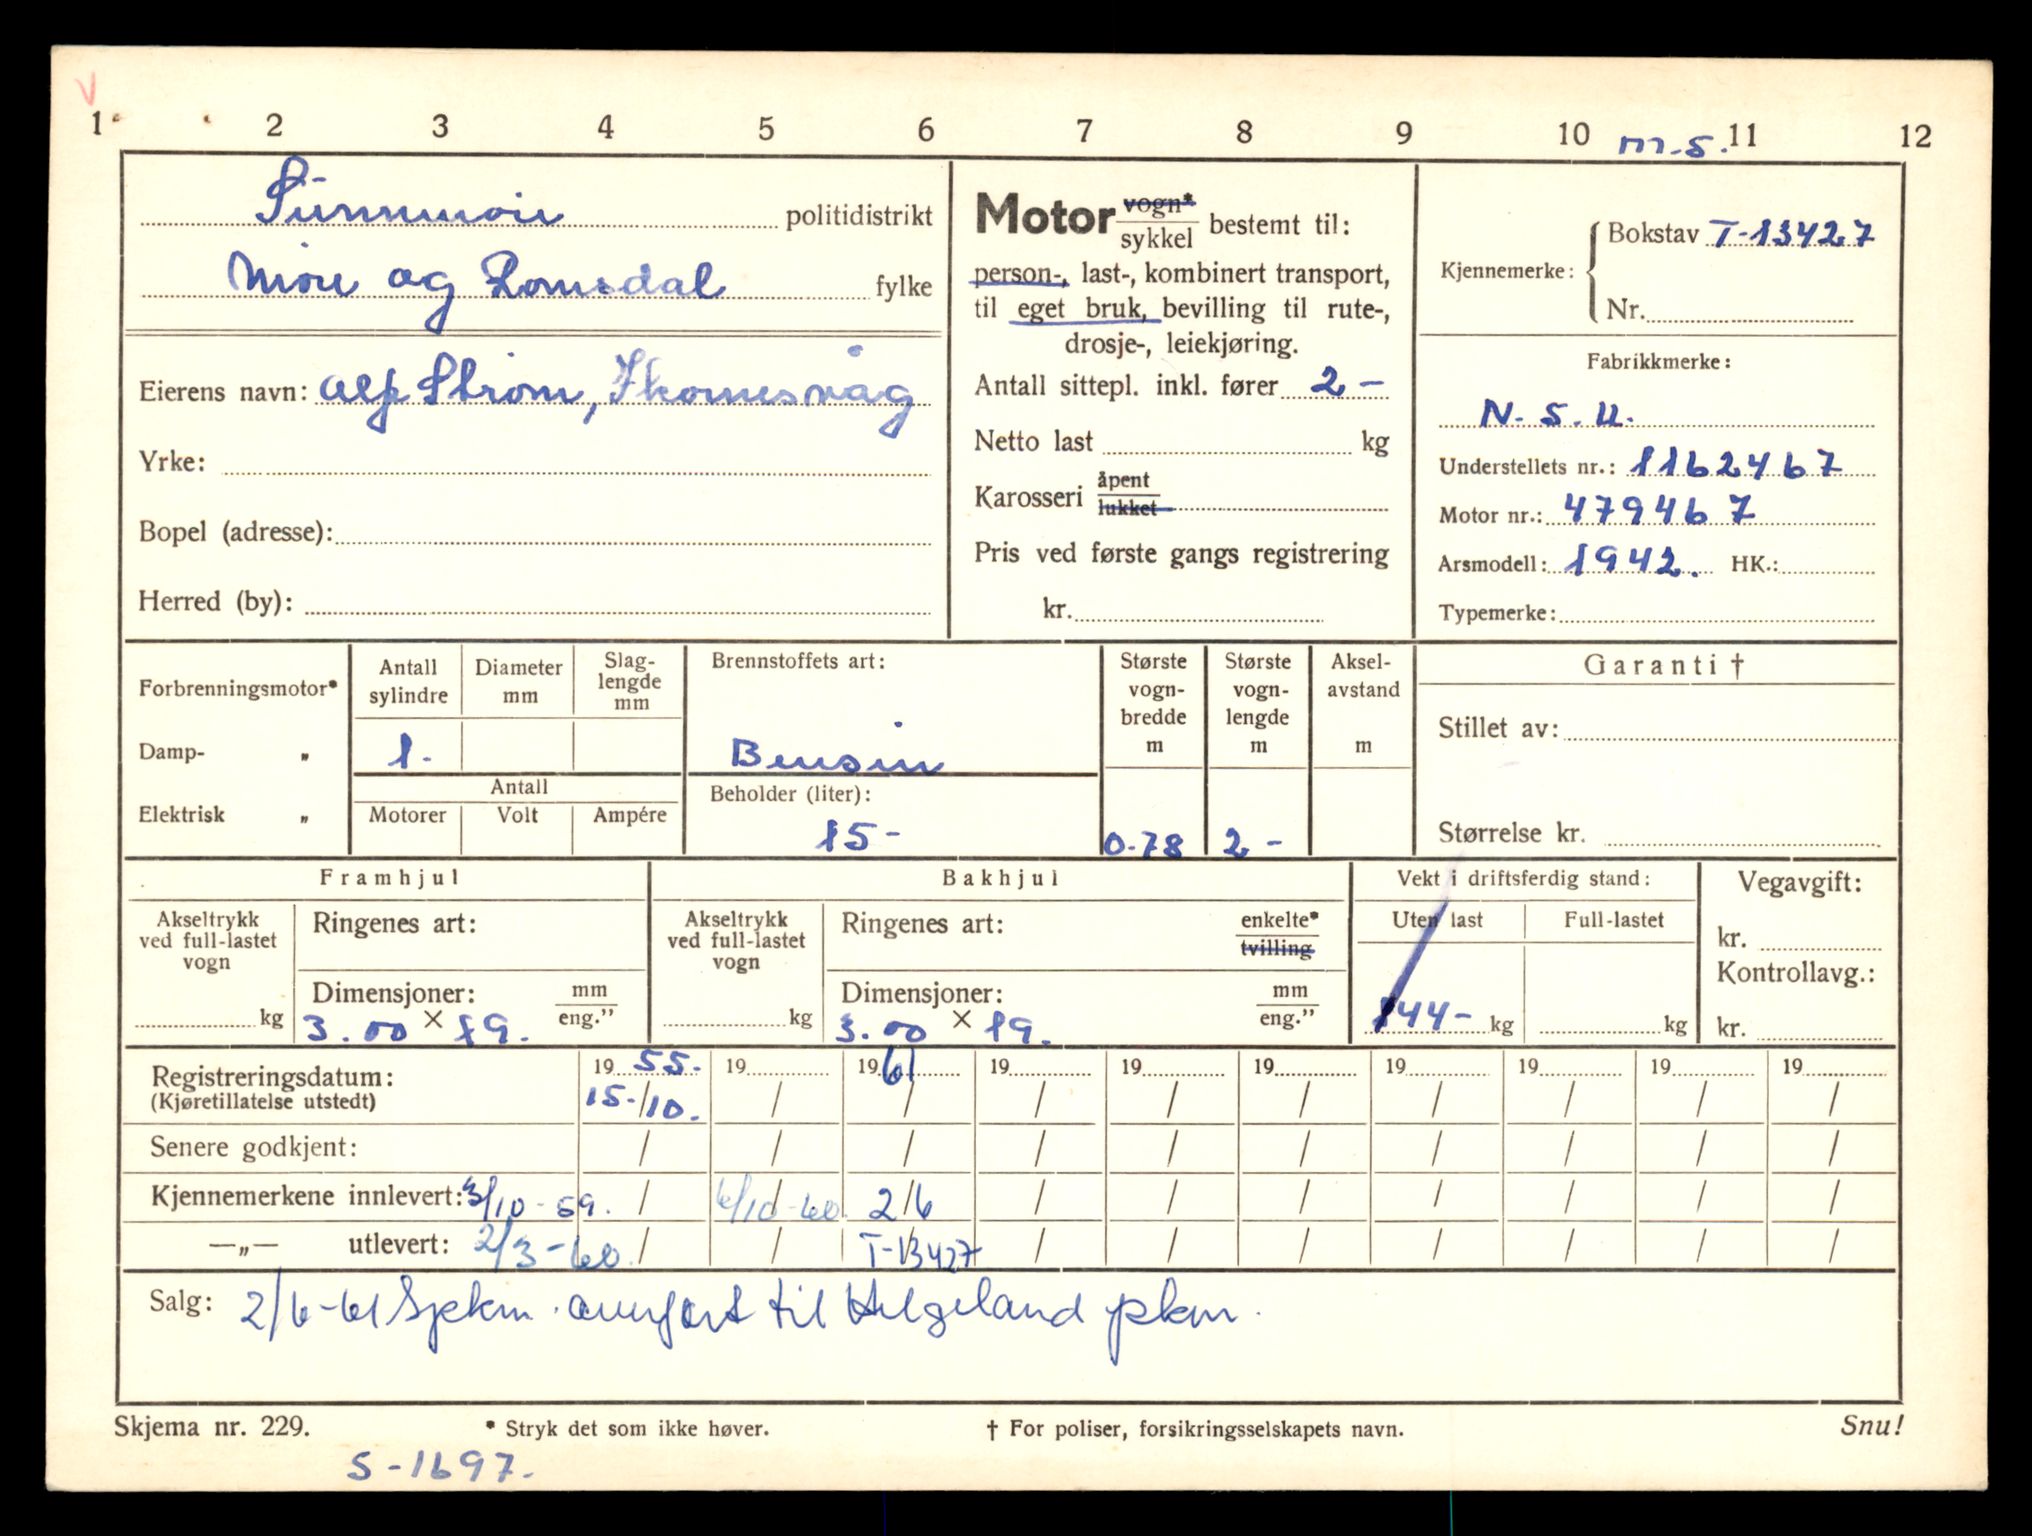 V
1 2 3 4 5 6 7 8 9 10 m.s. 11 12
Sunnmøre politidistrikt
Møre og Romsdal fylke
Eierens navn: Alf Strøm,
Yrke:
Bopel (adresse):
Herred (by):
Motor vogn* sykkel bestemt til:
person-, last-, kombinert transport,
til eget bruk, bevilling til rute-,
drosje-, leiekjøring.
Antall sittepl. inkl. fører 2 -
Netto last kg
Karosseri åpent lukket
Pris ved første gangs registrering
kr.
Kjennemerke: Bokstav T-13427
Nr.
Fabrikkmerke:
N. S. U.
Understellets nr.: 1162467
Motor nr.: 479467
Arsmodell: 1942. HK.:
Typemerke:
Forbrenningsmotor*
Damp- „
Elektrisk „
Antall sylindre
Diameter mm
Slag-
lengde
mm
1.
Antall
Motorer Volt Ampére
Brennstoffets art:
Bensin
Beholder (liter):
15 -
Største
vogn-
bredde
m
0.78
Største
vogn-
lengde
m
2 -
Aksel-
avstand
m
Garanti †
Stillet av:
Størrelse kr.
Framhjul
Akseltrykk
ved full-lastet
vogn
kg
Ringenes art:
Dimensjoner: mm eng."
3.00 × 19.
Bakhjul
Akseltrykk
ved full-lastet
vogn
kg
Ringenes art: enkelte* tvilling
Dimensjoner: mm eng."
3.00 × 19.
Vekt i driftsferdig stand:
Uten last Full-lastet
144- kg kg
Vegavgift:
kr.
Kontrollavg.:
kr.
Registreringsdatum: 19 55. 19 19 61 19 19 19 19 19 19 19
(Kjøretillatelse utstedt) 15./10. / / / / / / / / /
Senere godkjent: / / / / / / / / / /
Kjennemerkene innlevert: 3/10-59. / 6/10-60 2/6 / / / / / / /
—„— utlevert: 2/3-60. / / T-13427 / / / / / / /
Salg: 2/6-61 Sjekm. overført til Helgeland pkm.
Skjema nr. 229. * Stryk det som ikke høver. † For poliser, forsikringsselskapets navn. Snu!
S-1697.